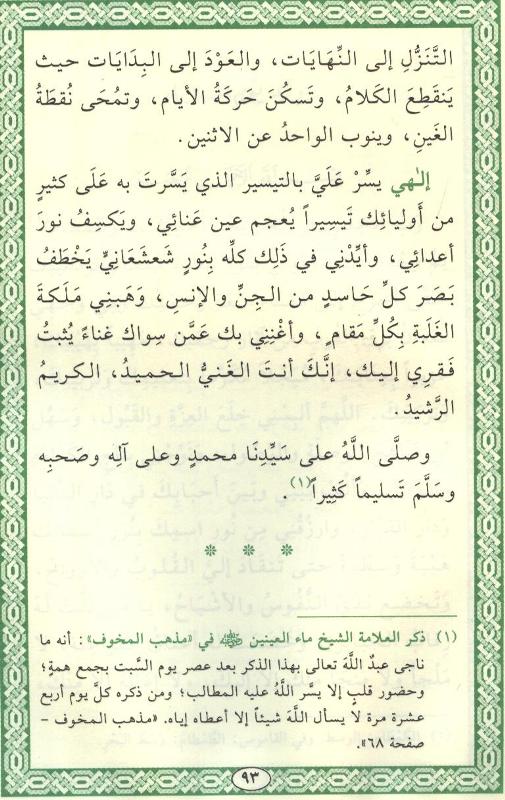 التَّنَزُّلِ إلى النِّهَايَات، والعَوْدَ إلى البِدَايَات حيث
يَنقَطِعَ الكَلامُ، وتَسكُنَ حَرَكَةُ الأيام، وتمُحَى نُقطَةُ
الغَينِ، وينوب الواحدُ عن الاثنين.
إلٰهي يسِّرْ عَلَيَّ بالتيسير الذي يَسَّرتَ به عَلَى كثيرٍ
من أَوليائِك تَيسِيراً يُعجم عين عَنائِي، ويَكسِفُ نورَ
أعدائِي، وأيِّدْنِي في ذَلِك كلِّه بِنُورٍ شَعشَعَانِيٍّ يَخْطَفُ
بَصَرَ كلِّ حَاسدٍ من الجِنِّ والإنسِ، وَهَبنِي مَلَكَةَ
الغَلَبةِ بِكُلِّ مَقامٍ، وأغْنِنِي بك عَمَّن سِواك غناءً يُثبتُ
فَقرِي إليك، إنَّكَ أنتَ الغَنيُّ الحميدُ، الكريمُ
الرَّشيدُ.
وصلَّى اللَّهُ على سَيِّدِنَا محمدٍ وعلى آلِه وصَحبِه
وسَلَّمَ تَسليماً كَثِيراً(١).
* * *
(١) ذكر العلامة الشيخ ماء العينين ﷺ في «مذهب المخوف»: أنه ما
ناجى عبدٌ اللَّهَ تعالى بهذا الذكر بعد عصر يوم السَّبت بجمع همةٍ؛
وحضور قلبٍ إلا يسَّر اللَّهُ عليه المطالب؛ ومن ذكره كلَّ يوم أربع
عشرة مرة لا يسأل اللَّهَ شيئاً إلا أعطاه إياه. «مذهب المخوف -
صفحة ٦٨».
٩٣